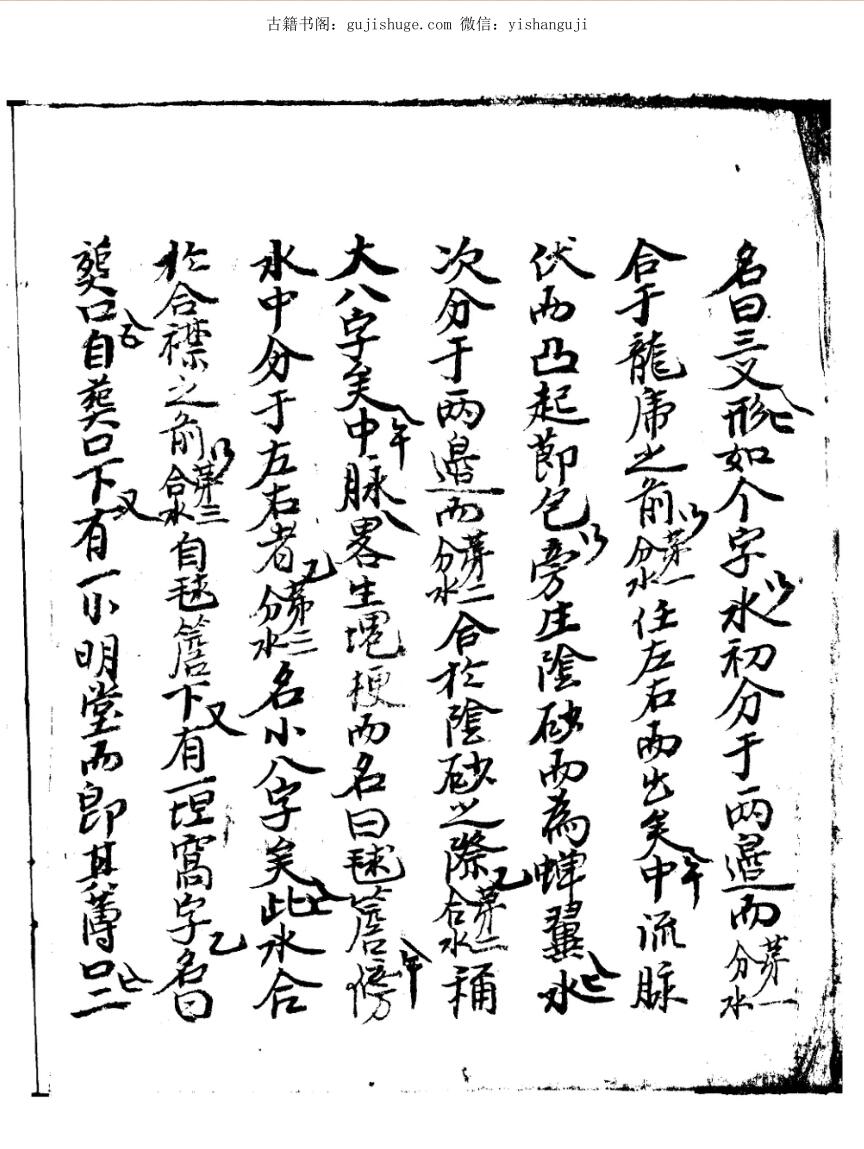 古籍书阁：gujishuge.com 微信：yishanguji
名曰三叉形如个字水初分于两邉而第一分水
合于龍虎之前第一分水任左右而出矣中流脉
伏而凸起節包旁庄陰砂而為蝉翼水
次分于两邉而第二分水合於陰砂之際第二合水稱
大八字矣中脉畧生塊梗而名曰毬簷傍
水中分于左右者第三分水名小八字矣此水合
於合襟之前第三合水自毬簷下有一坦窩字名曰
葬口自葬口下有一小明堂而即其薄口二